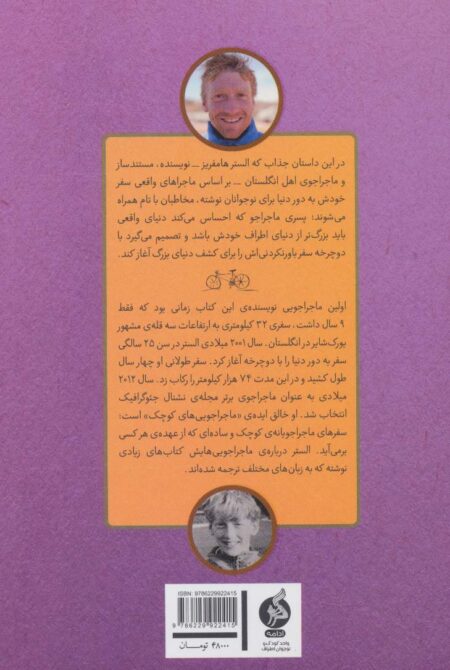 در این داستان جذاب که الستر هامفریز ــ نویسنده، مستندساز
و ماجراجوی اهل انگلستان ــ بر اساس ماجراهای واقعی سفر
خودش به دور دنیا برای نوجوانان نوشته، مخاطبان با تام همراه
می‌شوند؛ پسری ماجراجو که احساس می‌کند دنیای واقعی
باید بزرگ‌تر از دنیای اطراف خودش باشد و تصمیم می‌گیرد با
دوچرخه سفر باورنکردنی‌اش را برای کشف دنیای بزرگ آغاز کند.
اولین ماجراجویی نویسنده‌ی این کتاب زمانی بود که فقط
۹ سال داشت، سفری ۳۲ کیلومتری به ارتفاعات سه قله‌ی مشهور
یورک‌شایر در انگلستان. سال ۲۰۰۱ میلادی الستر در سن ۲۵ سالگی
سفر به دور دنیا را با دوچرخه آغاز کرد. سفر طولانی او چهار سال
طول کشید و در این مدت ۷۴ هزار کیلومتر را رکاب زد. سال ۲۰۱۲
میلادی به عنوان ماجراجوی برتر مجله‌ی نشنال جئوگرافیک
انتخاب شد. او خالق ایده‌ی «ماجراجویی‌های کوچک» است؛
سفرهای ماجراجویانه‌ی کوچک و ساده‌ای که از عهده‌ی هر کسی
برمی‌آید. الستر درباره‌ی ماجراجویی‌هایش کتاب‌های زیادی
نوشته که به زبان‌های مختلف ترجمه شده‌اند.
ISBN: 9786229922415
9 786229 922415
۴۸۰۰۰ تومان
ادامه
واحد کودک و
نوجوان اطراف